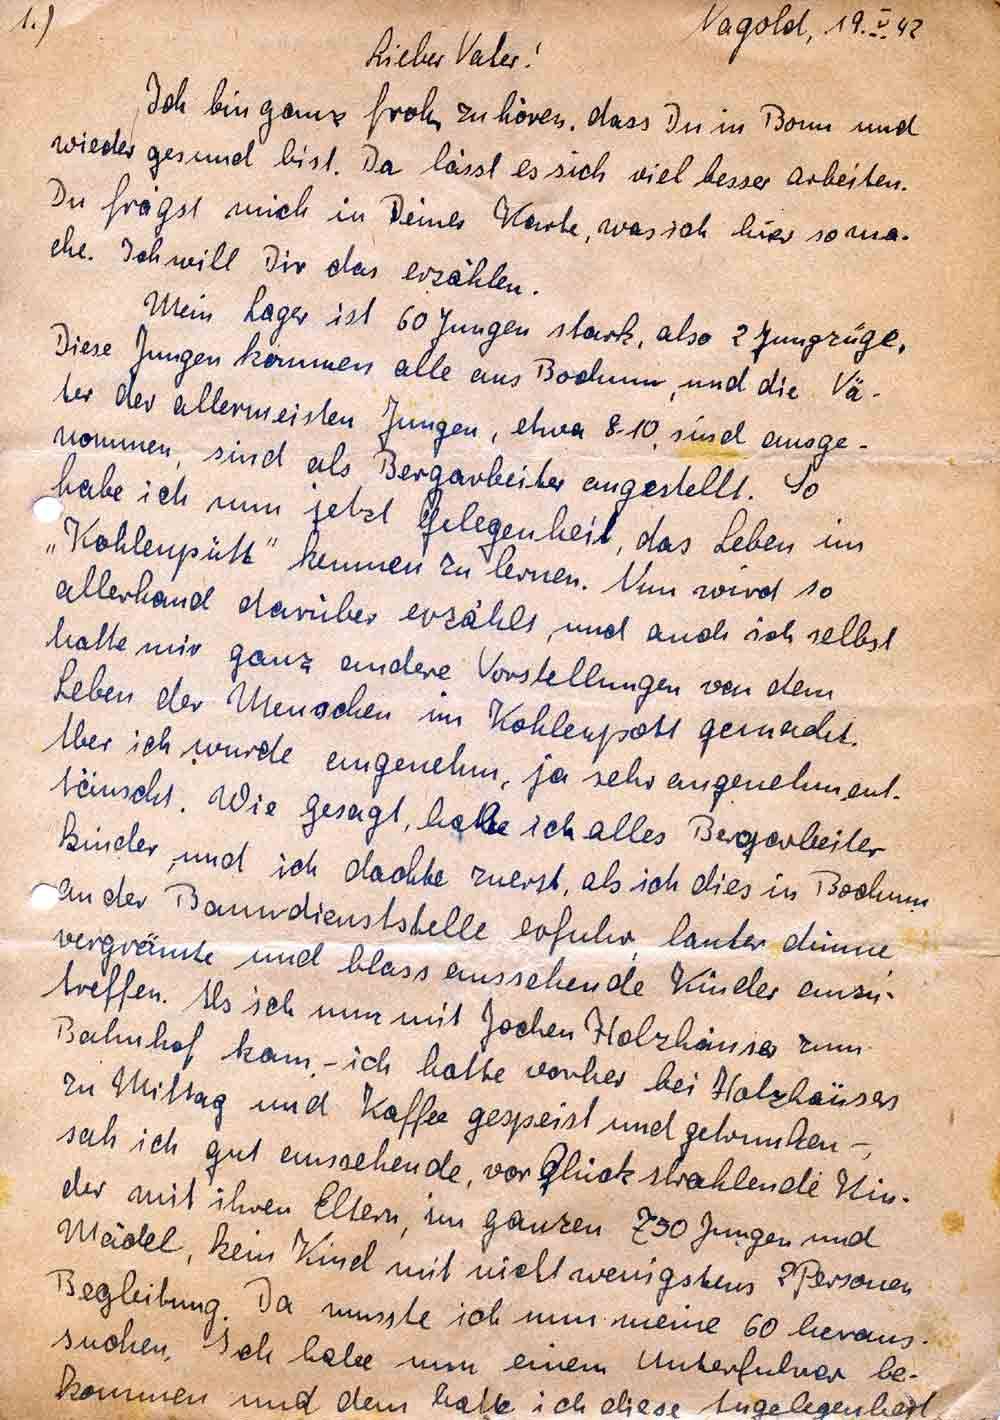 1.)
Nagold, 19. V. 42
Lieber Vater!
Ich bin ganz froh, zu hören, dass Du in Bonn und
wieder gesund bist. Da lässt es sich viel besser arbeiten.
Du frägst mich in Deiner Karte, was ich hier so ma-
che. Ich will Dir das erzählen.
Mein Lager ist 60 Jungen stark, also 2 Jungzüge.
Diese Jungen kommen alle aus Bochum, und die Vä-
ter der allermeisten Jungen, etwa 8-10 sind ausge-
nommen, sind als Bergarbeiter angestellt. So
habe ich nun jetzt Gelegenheit, das Leben im
„Kohlenpütt" kennen zu lernen. Nun wird so
allerhand darüber erzählt, und auch ich selbst
hatte mir ganz andere Vorstellungen von dem
Leben der Menschen im Kohlenpott gemacht.
Aber ich wurde angenehm, ja sehr angenehm ent-
täuscht. Wie gesagt, habe ich alles Bergarbeiter
kinder, und ich dachte zuerst, als ich dies in Bochum
an der Banndienststelle erfuhr, lauter dünne
vergrämte und blass aussehende Kinder anzu-
treffen. Als ich nun mit Jochen Holzhäuser zum
Bahnhof kam, - ich hatte vorher bei Holzhäusers
zu Mittag und Kaffee gespeist und getrunken -,
sah ich gut aussehende, vor Glück strahlende Kin-
der mit ihren Eltern, im ganzen 750 Jungen und
Mädel, kein Kind mit nicht wenigstens 2 Personen
Begleitung. Da musste ich nun meine 60 heraus-
suchen. Ich habe nun einen Unterführer be-
kommen und dem hatte ich diese Angelegenheit